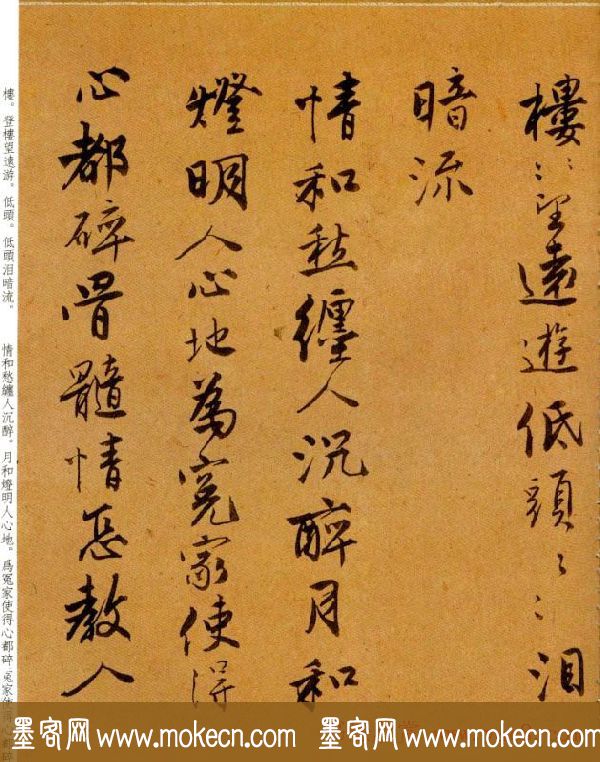 樓〻望遠遊低頭〻〻泪
暗流
情和愁纏人沉醉月和
燈明人心地為冤家使得
心都碎骨髓情忒教人
樓。登樓望遠游。低頭。低頭泪暗流。
情和愁纏人沉醉。月和燈明人心地。爲冤家使得心都碎
墨客网 www.mokecn.com 墨客网 www.mokecn.com